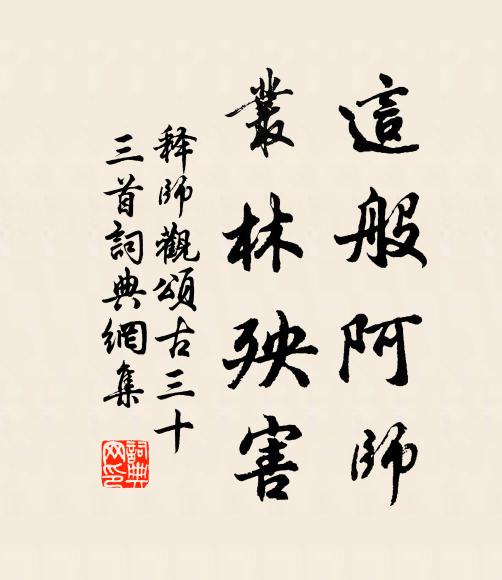 這般阿師
叢林殃害
释師觀頌古三十
三首詞典網集
詞典网印